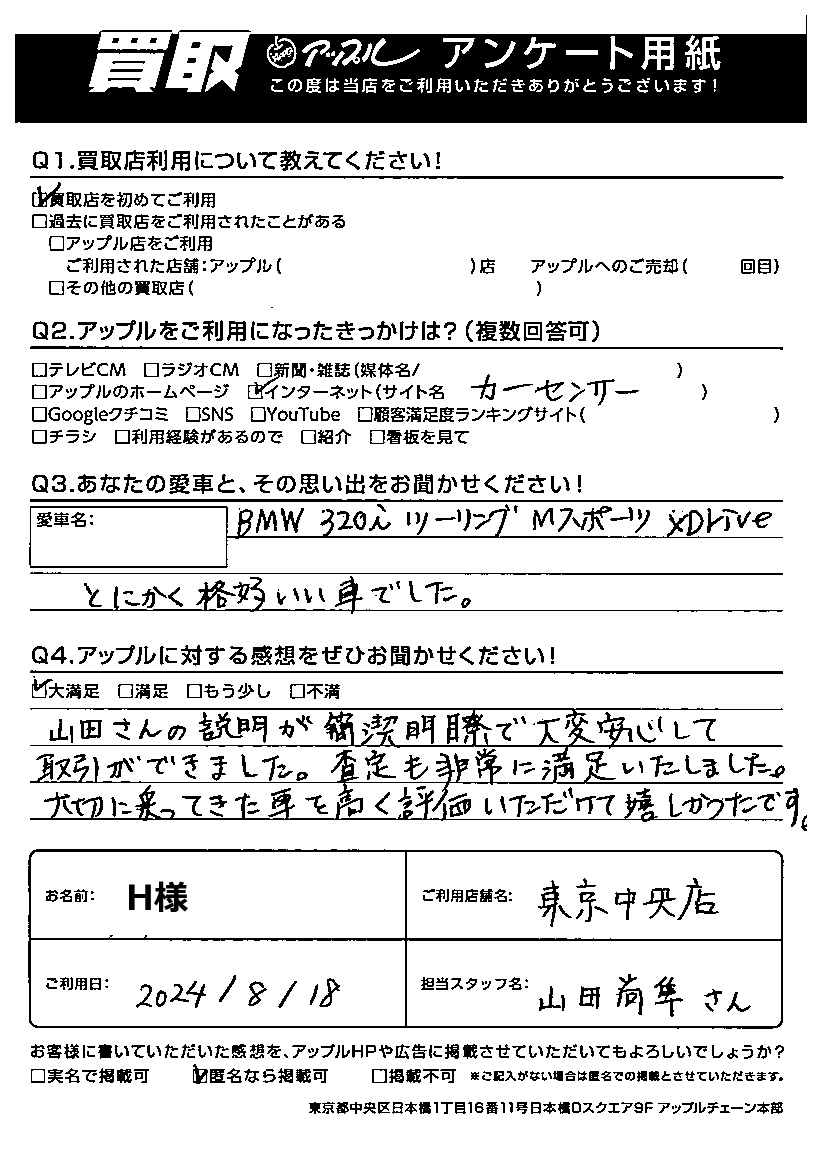 買取 アップル アンケート用紙
この度は当店をご利用いただきありがとうございます!
Q1.買取店利用について教えてください!
☑買取店を初めてご利用
□過去に買取店をご利用されたことがある
□アップル店をご利用
ご利用された店舗:アップル( )店 アップルへのご売却( 回目)
□その他の買取店( )
Q2.アップルをご利用になったきっかけは?(複数回答可)
□テレビCM □ラジオCM □新聞・雑誌(媒体名/ )
□アップルのホームページ ☑インターネット(サイト名 カーセンサー )
□Googleクチコミ □SNS □YouTube □顧客満足度ランキングサイト( )
□チラシ □利用経験があるので □紹介 □看板を見て
Q3.あなたの愛車と、その思い出をお聞かせください!
愛車名: BMW 320i ツーリング Mスポーツ xDrive
とにかく格好いい車でした。
Q4.アップルに対する感想をぜひお聞かせください!
☑大満足 □満足 □もう少し □不満
山田さんの説明が簡潔明瞭で大変安心して
取引ができました。査定も非常に満足いたしました。
大切に乗ってきた車を高く評価いただけて嬉しかったです。
お名前: H様 ご利用店舗名: 東京中央店
ご利用日: 2024/8/18 担当スタッフ名: 山田尚隼さん
お客様に書いていただいた感想を、アップルHPや広告に掲載させていただいてもよろしいでしょうか?
□実名で掲載可 ☑匿名なら掲載可 □掲載不可 ※ご記入がない場合は匿名での掲載とさせていただきます。
東京都中央区日本橋1丁目16番11号日本橋Dスクエア9F アップルチェーン本部